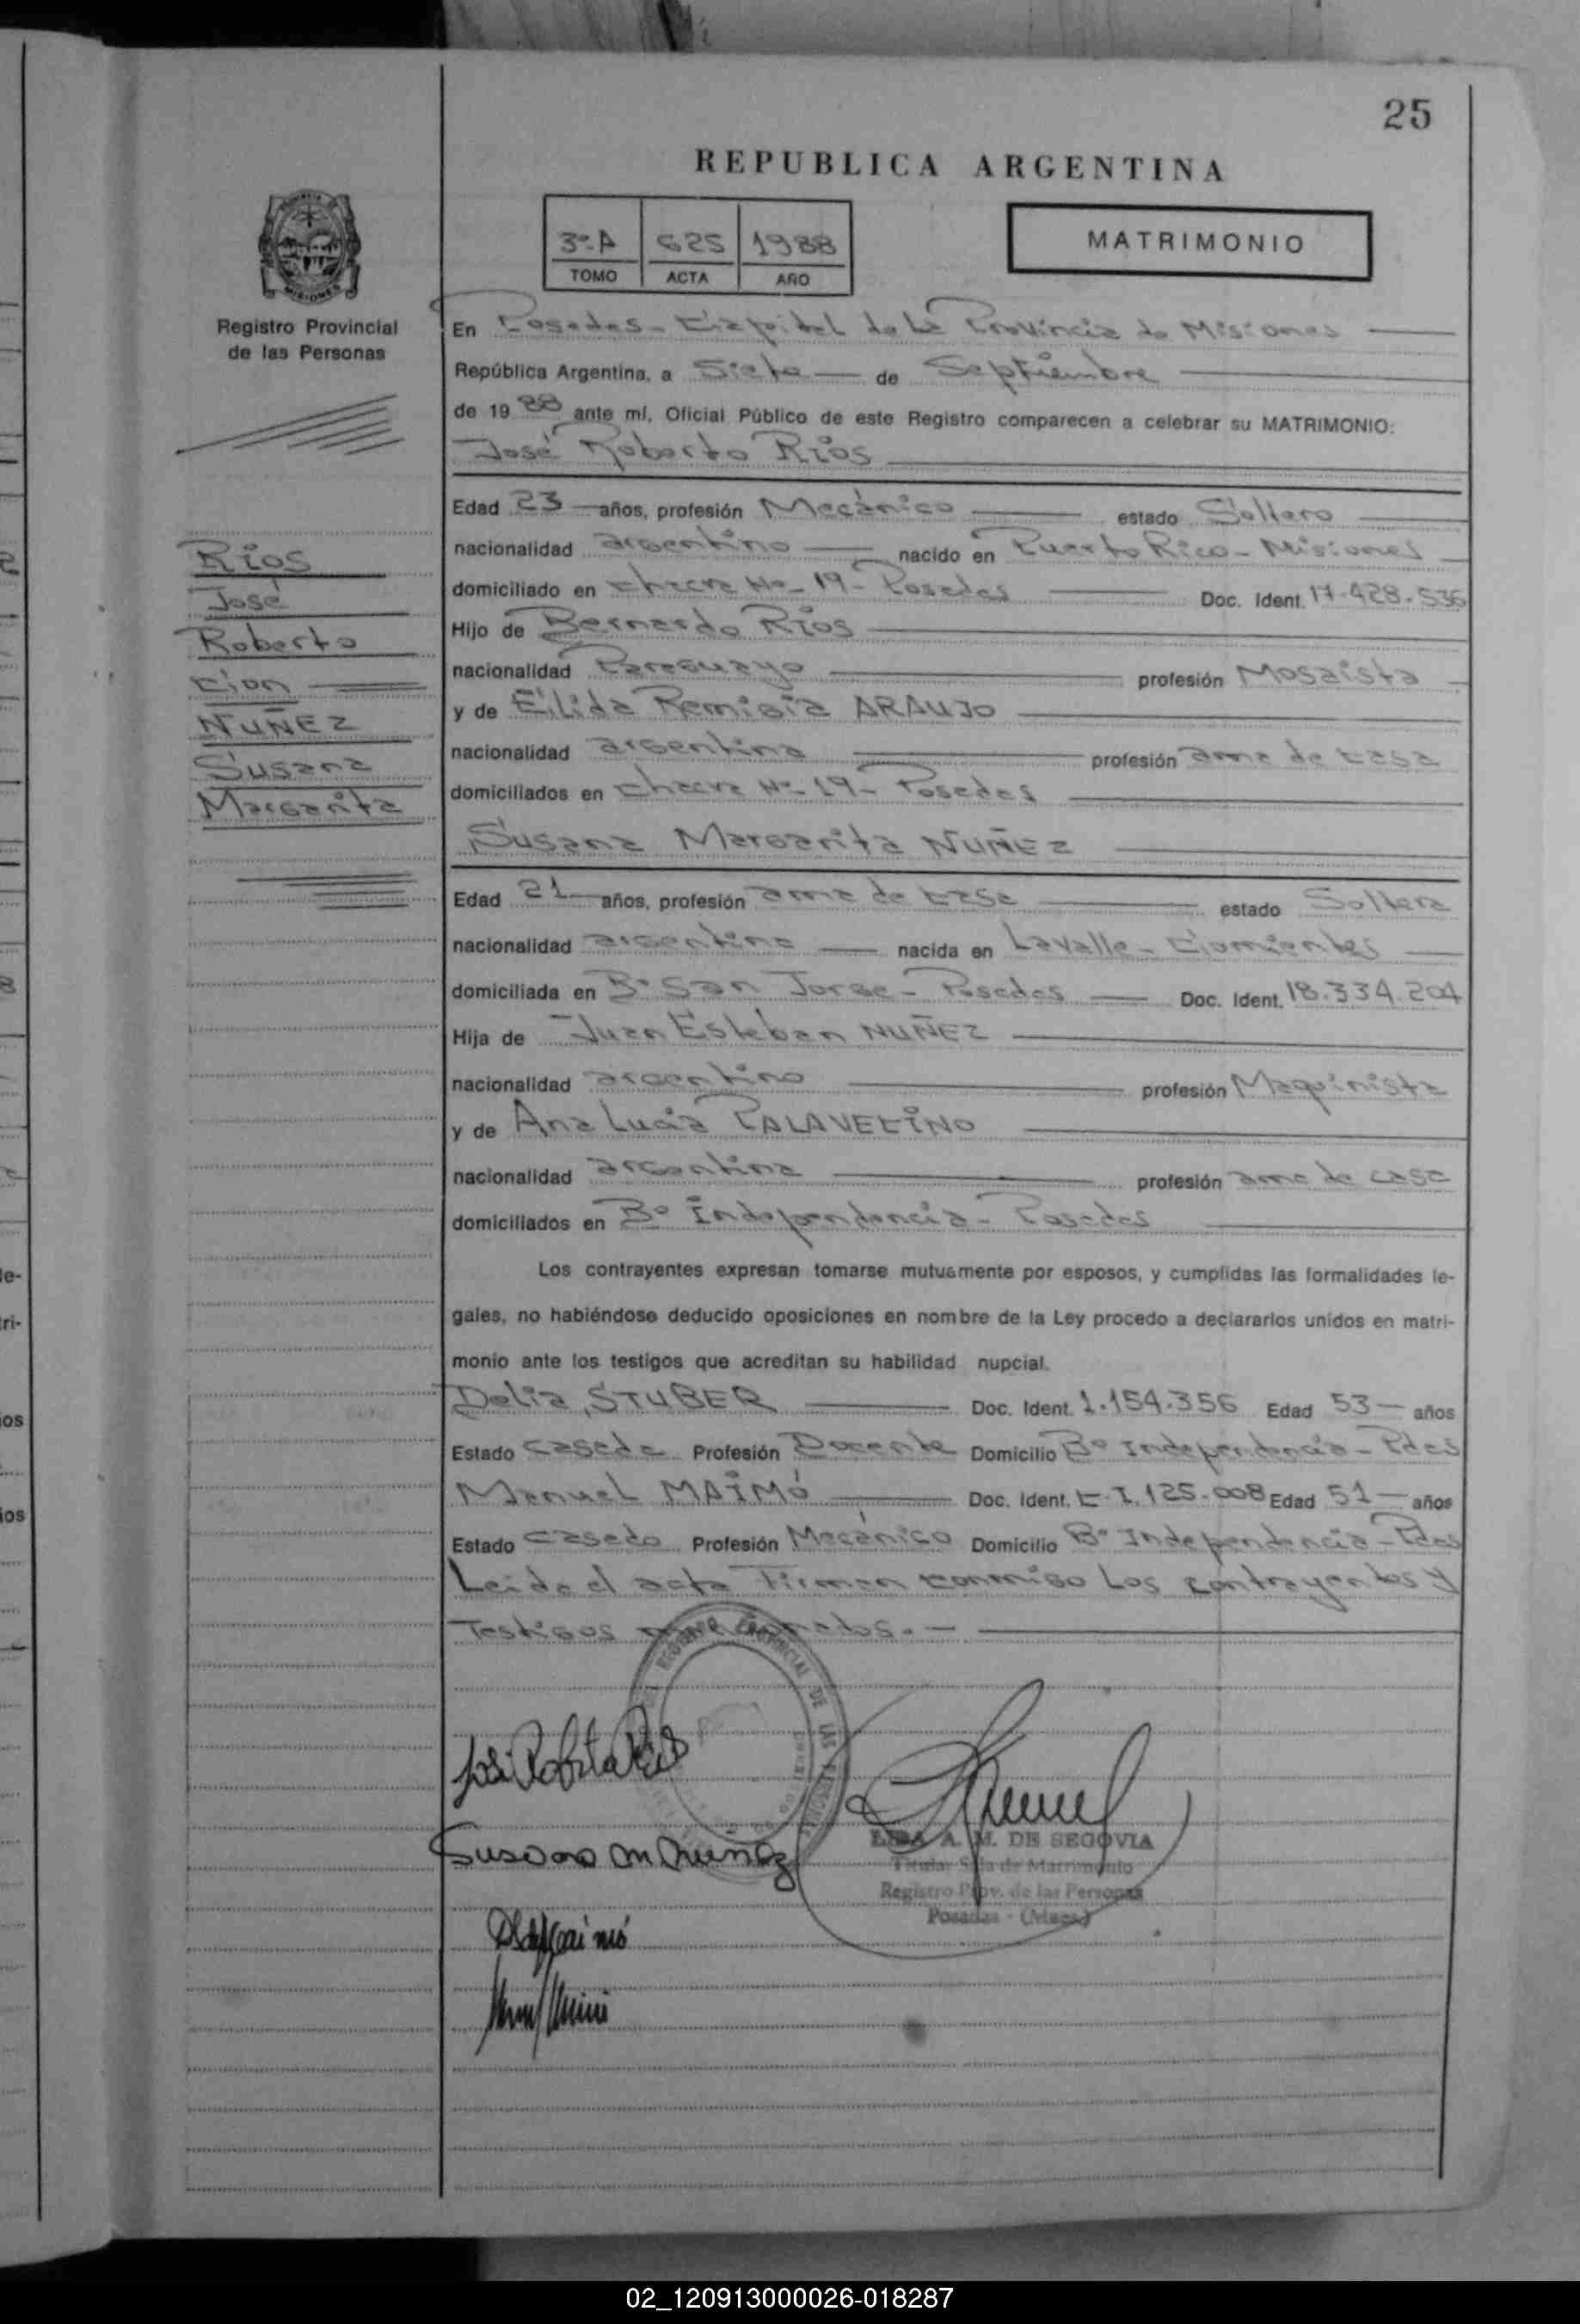 25
REPUBLICA ARGENTINA
3º-A 625 1988
TOMO ACTA AÑO
MATRIMONIO
Registro Provincial
de las Personas
Rios
José
Roberto
con
NUÑEZ
Susana
Margarita
En Posadas - Capital de la Provincia de Misiones
República Argentina, a Siete de Septiembre
de 1988 ante mí, Oficial Público de este Registro comparecen a celebrar su MATRIMONIO:
José Roberto Rios
Edad 23 años, profesión Mecánico estado Soltero
nacionalidad argentino nacido en Puerto Rico - Misiones
domiciliado en chacra Nº- 19 - Posadas Doc. Ident. 17.428.536
Hijo de Bernardo Rios
nacionalidad Paraguayo profesión Mosaista
y de Elida Remigia ARAUJO
nacionalidad argentina profesión ama de casa
domiciliados en chacra Nº- 19 - Posadas
Susana Margarita NUÑEZ
Edad 21 años, profesión ama de casa estado Soltera
nacionalidad argentina nacida en Lavalle - Corrientes
domiciliada en Bº San Jorge - Posadas Doc. Ident. 18.334.204
Hija de Juan Esteban NUÑEZ
nacionalidad argentino profesión Maquinista
y de Ana Lucia PALAVECINO
nacionalidad argentina profesión ama de casa
domiciliados en Bº Independencia - Posadas
Los contrayentes expresan tomarse mutuamente por esposos, y cumplidas las formalidades le-
gales, no habiéndose deducido oposiciones en nombre de la Ley procedo a declararlos unidos en matri-
monio ante los testigos que acreditan su habilidad nupcial.
Delia, STUBER Doc. Ident. 1.154.356 Edad 53 años
Estado casada Profesión Docente Domicilio Bº Independencia - Pdas
Manuel MAIMÓ Doc. Ident. C.I. 125.008 Edad 51 años
Estado casado Profesión Mecánico Domicilio Bº Independencia - Pdas
Leida el acta Firman conmigo los contrayentes y
Testigos mencionados.-
REGISTRO PROVINCIAL DE LAS PERSONAS
José Roberto Rios
Susana M Nuñez
LIDA A. M. DE SEGOVIA
Titular Sala de Matrimonio
Registro Prov. de las Personas
Posadas - (Mnes.)
02_120913000026-018287